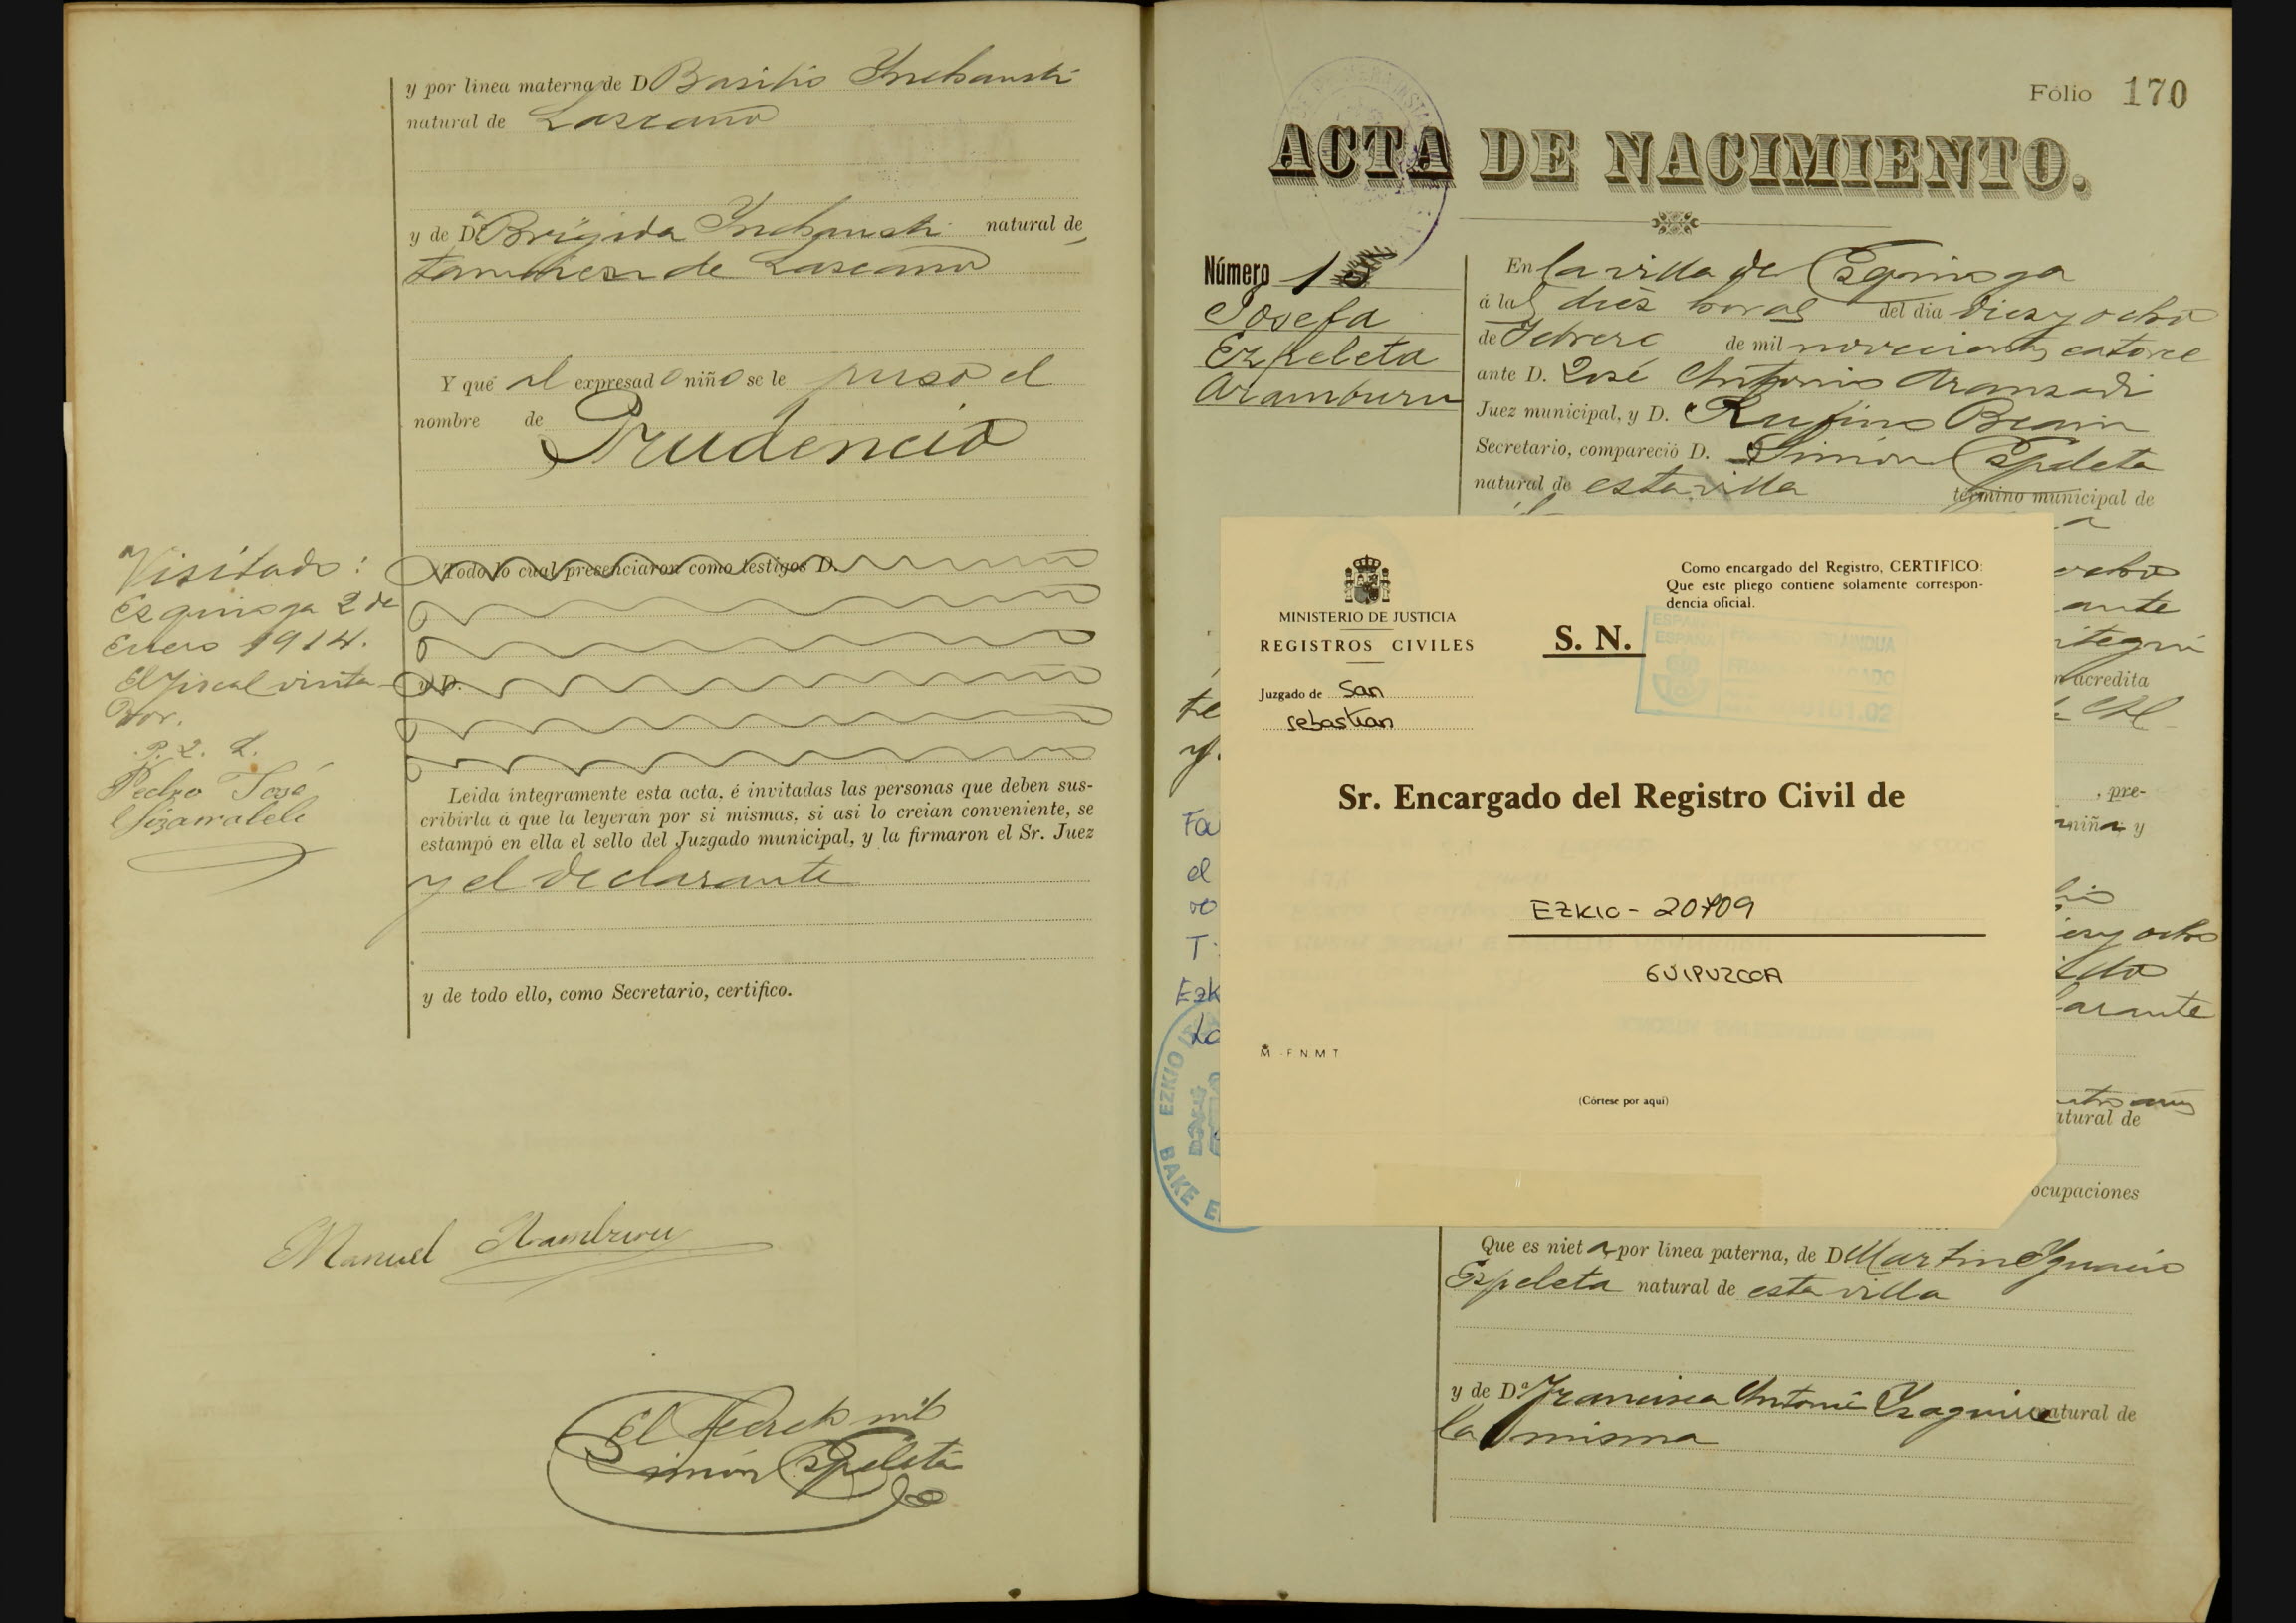 y por linea materna de D Basilio Ynchausti
natural de Lazcano
y de Dª Brígida Ynchausti natural de
tambien de Lazcano
Y que al expresado niño se le puso el
nombre de Prudencio
Visitado:
Ezquioga 2 de
Enero 1914.
El fiscal visita
dor.
Pedro José
Todo lo cual presenciaron como testigos D.
y D.
Leida íntegramente esta acta, é invitadas las personas que deben sus-
cribirla á que la leyeran por si mismas, si asi lo creian conveniente, se
estampó en ella el sello del Juzgado municipal, y la firmaron el Sr. Juez
y el declarante
y de todo ello, como Secretario, certifico.
Manuel Aramburu
El
Simón Ezpeleta
Fólio 170
ACTA DE NACIMIENTO.
Número 1
Josefa
Ezpeleta
Aramburu
En la villa de Ezquioga
á las diez horas del dia diez y ocho
de Febrero de mil novecientos catorce
ante D. José Antonio Aranzadi
Juez municipal, y D. Rufino Beain
Secretario, compareció D. Simón Ezpeleta
natural de esta villa término municipal de
ocho
ante
acredita
, pre-
niña y
ocho
larante
natural de
ocupaciones
te
y
Fa
el
T
Ezk
Lo
EZKIO
BAKE
MINISTERIO DE JUSTICIA
REGISTROS CIVILES
S. N.
Como encargado del Registro, CERTIFICO:
Que este pliego contiene solamente correspon-
dencia oficial.
Juzgado de San
Sebastian
Sr. Encargado del Registro Civil de
EZKIO - 20709
GUIPUZCOA
F.N.M.T
(Córtese por aquí)
Que es nieta por linea paterna, de D Martin Ygnacio
Ezpeleta natural de esta villa
y de Dª Francisca Antonia Yzaguirre natural de
la misma